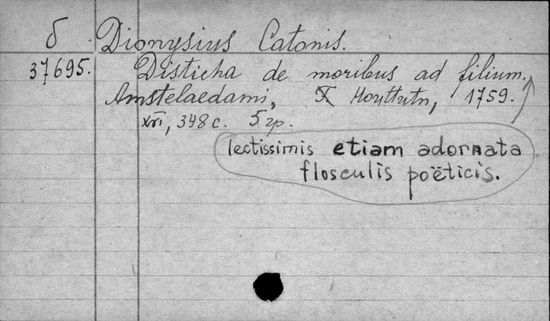 б Dionysius Catonis.
37695. Disticha de moribus ad filium.
Amstelaedami, Houttutn, 1759.
xvi, 348 c. 5 гр.
lectissimis etiam adornata
flosculis poëticis.